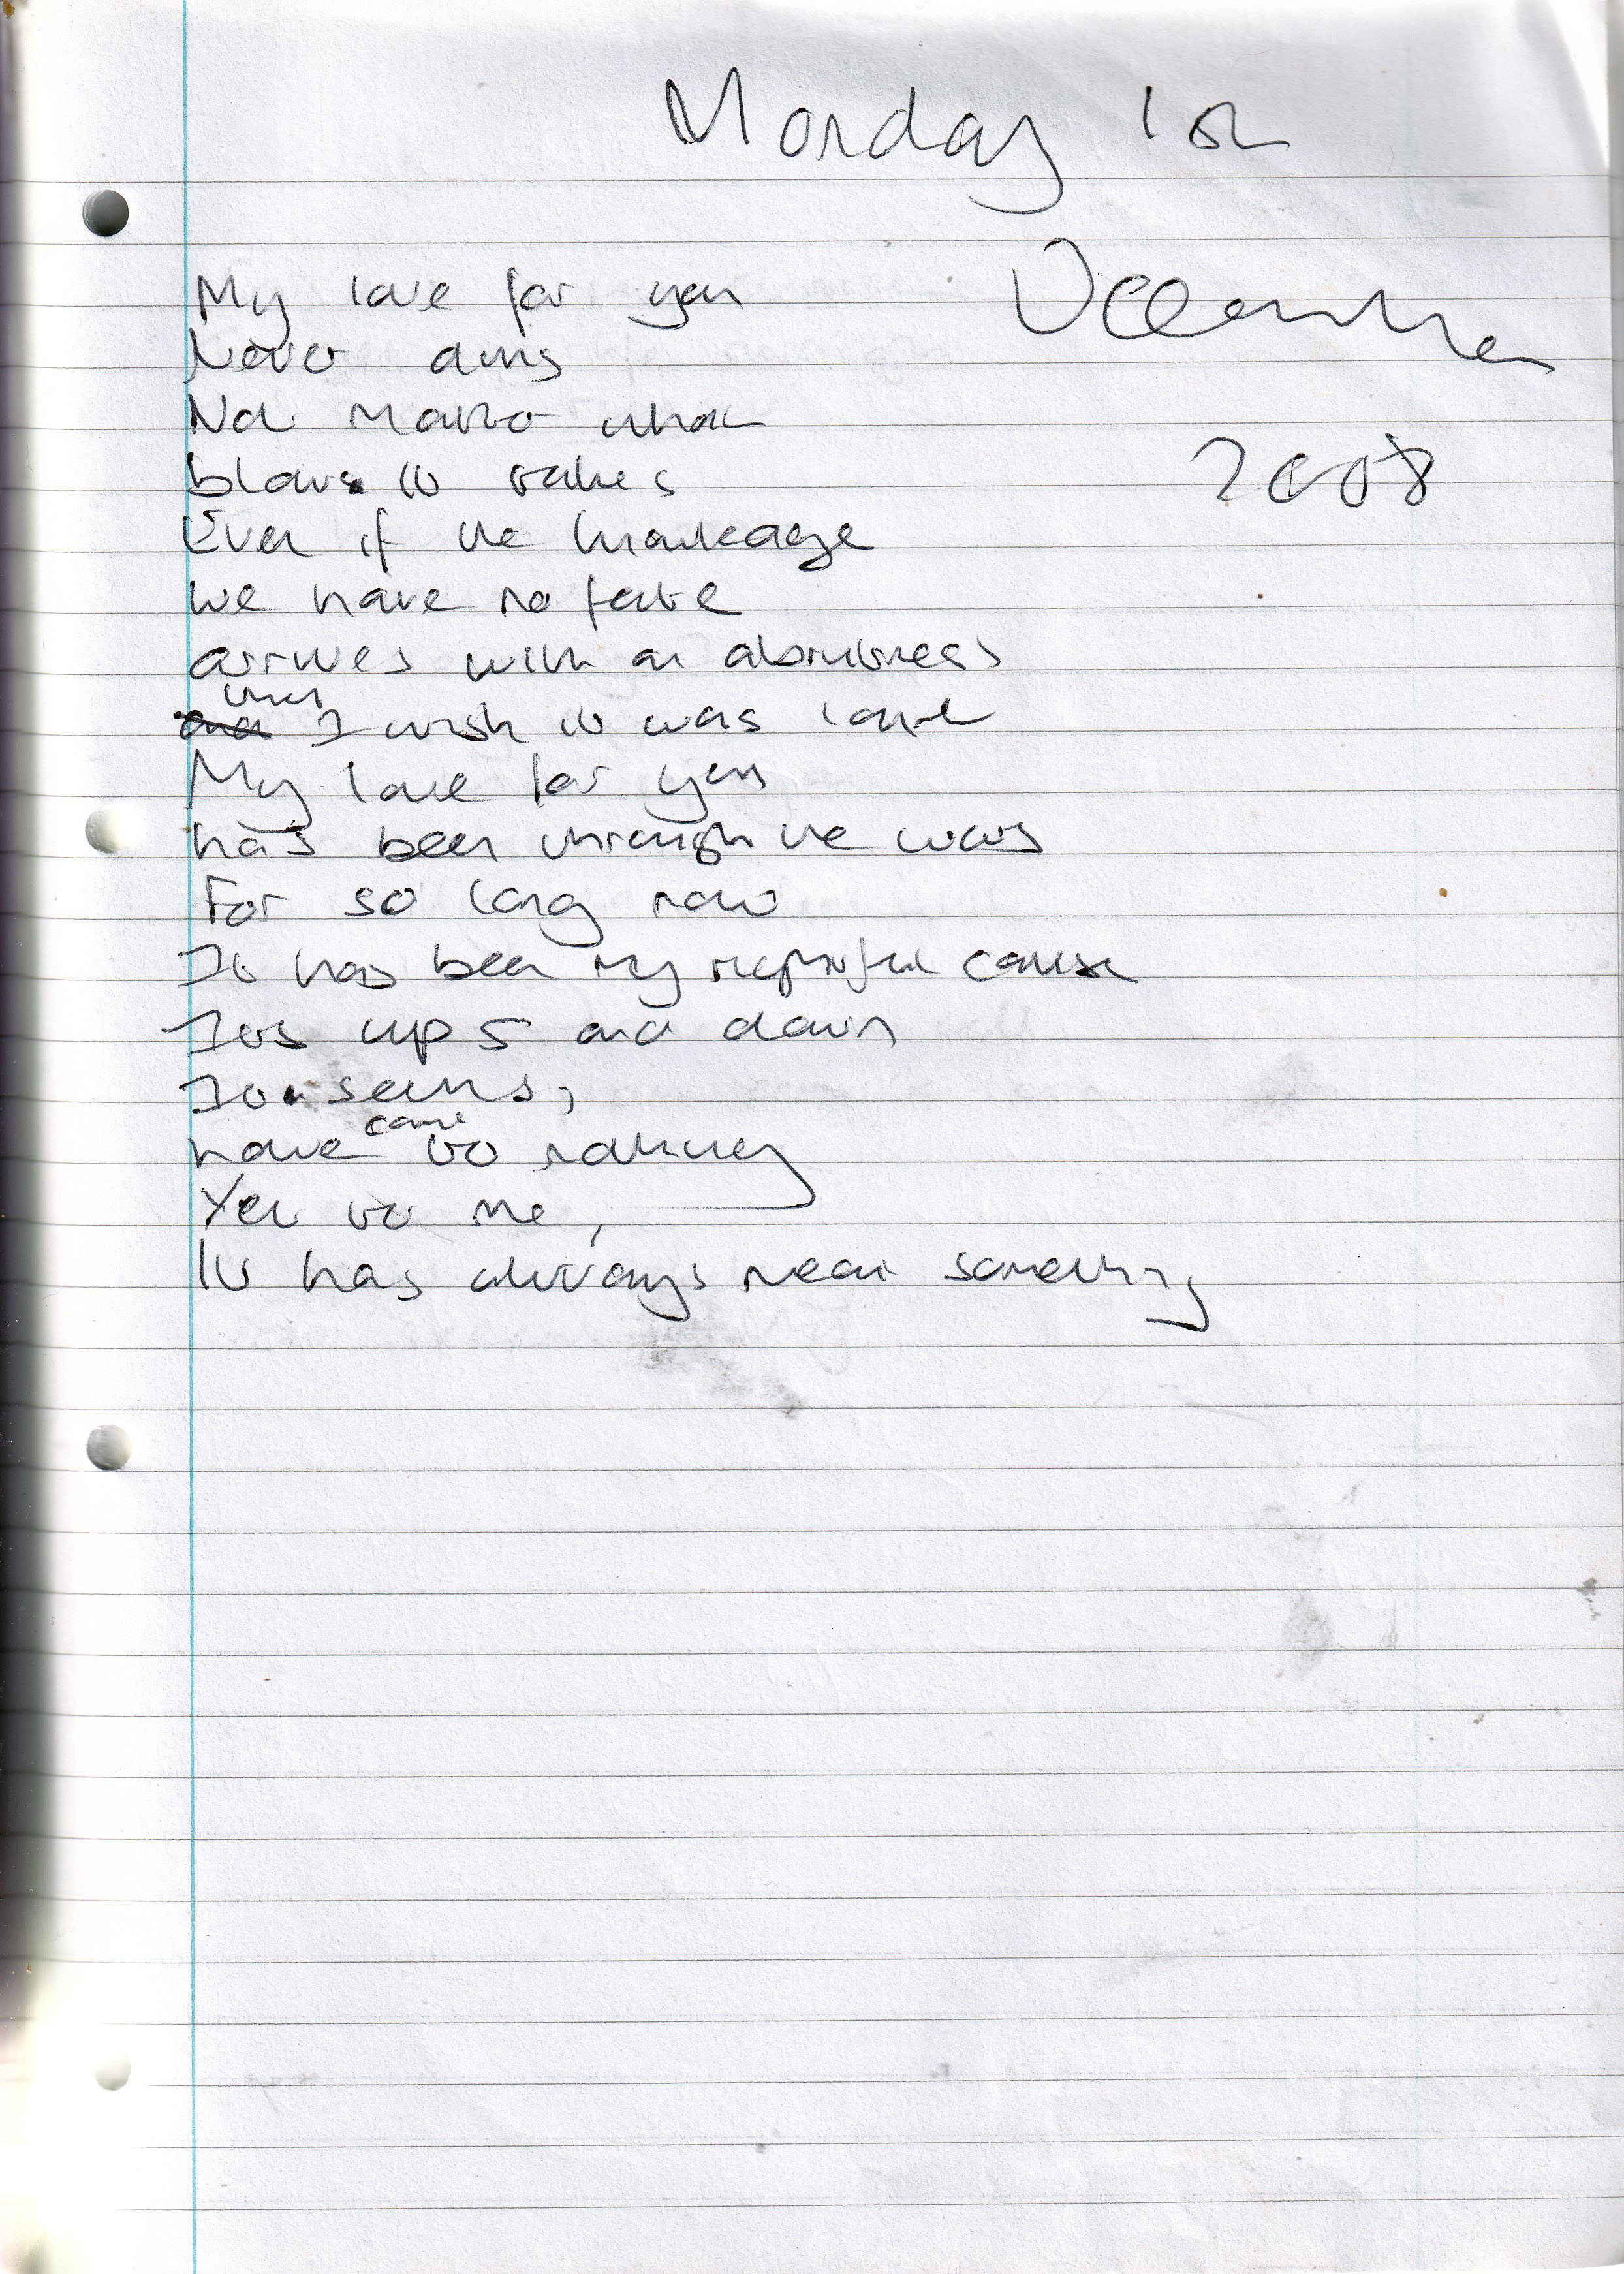 Monday 1st
December
2008
My love for you
Never dims
No matter what
blows it takes
Even if the knowledge
we have no fate
arrives with an abruptness
and that I wish it was late
My love for you
has been through the wars
For so long now
It has been my rightful cause
Its ups and down
It seems,
have came to nothing
Yet to me,
It has always mean something